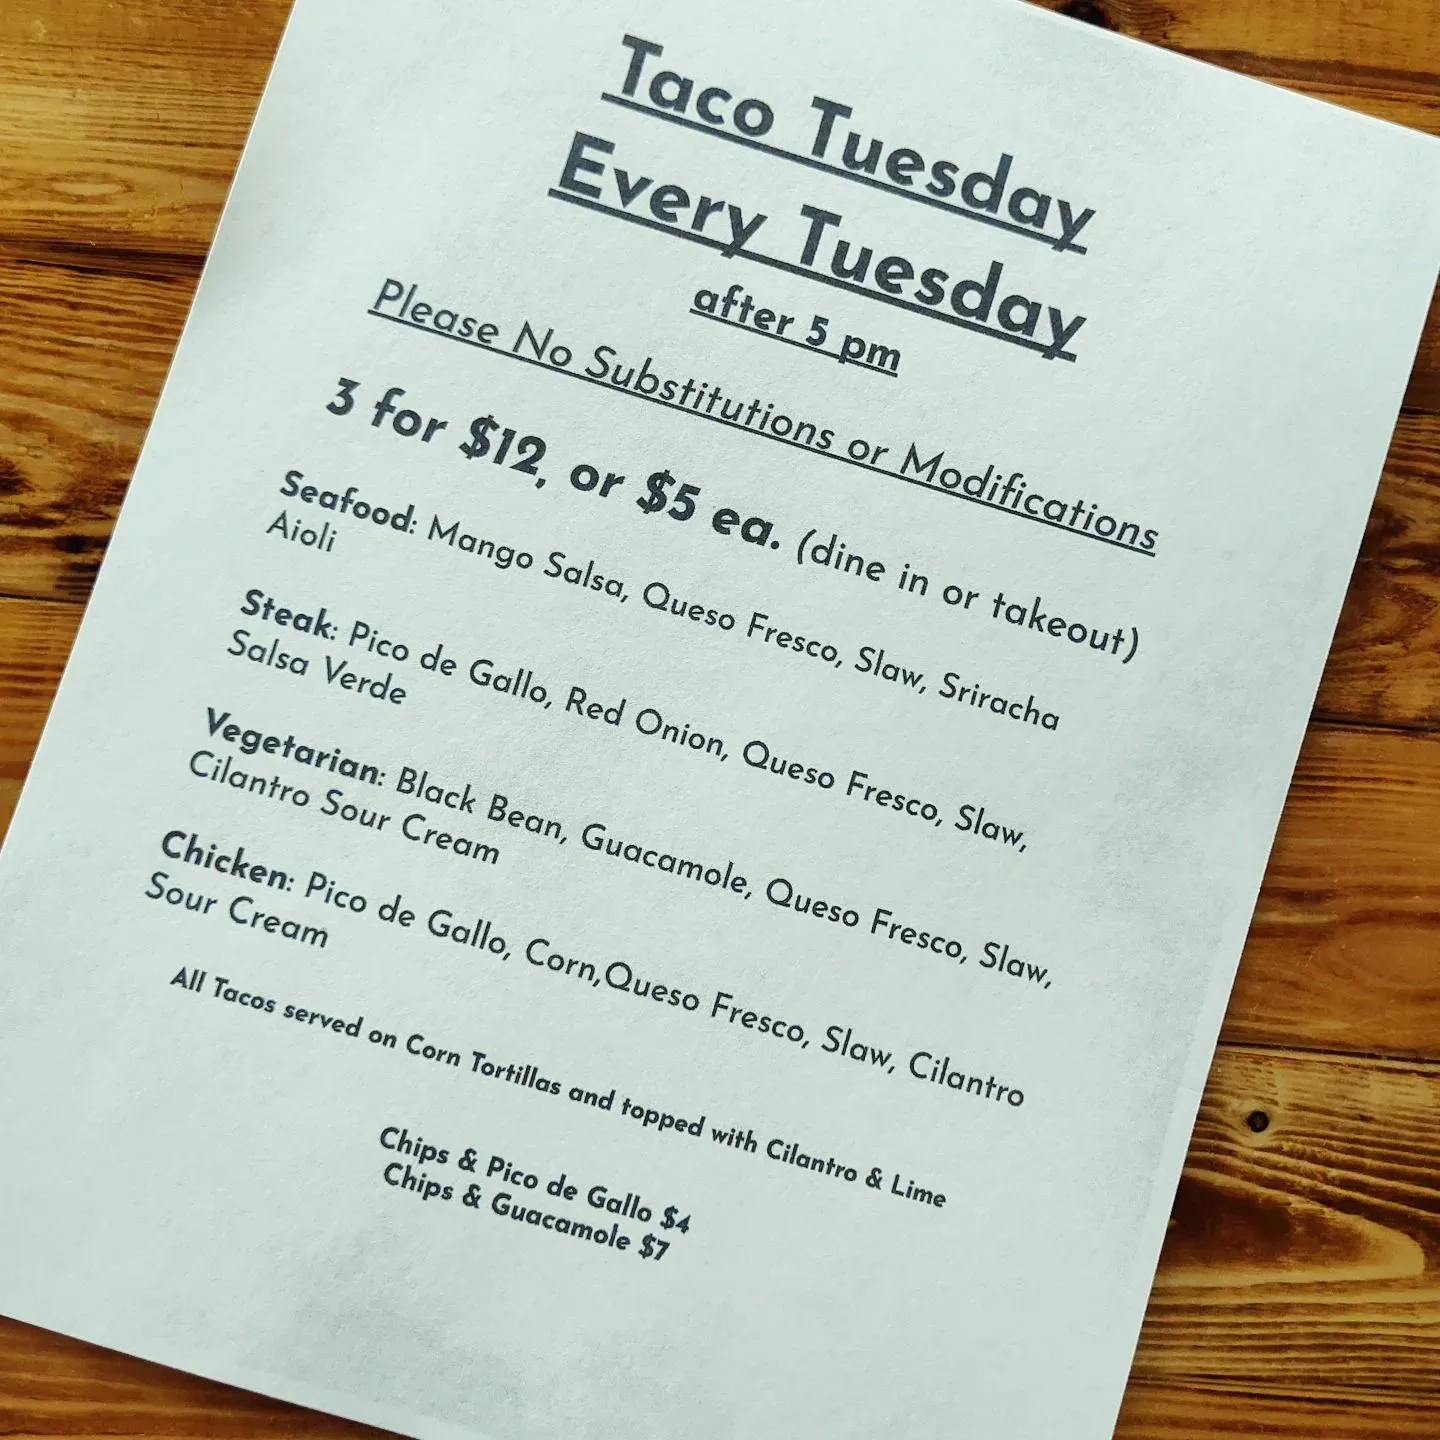 Taco Tuesday
Every Tuesday
after 5 pm
Please No Substitutions or Modifications
3 for $12, or $5 ea. (dine in or takeout)
Seafood: Mango Salsa, Queso Fresco, Slaw, Sriracha
Aioli
Steak: Pico de Gallo, Red Onion, Queso Fresco, Slaw,
Salsa Verde
Vegetarian: Black Bean, Guacamole, Queso Fresco, Slaw,
Cilantro Sour Cream
Chicken: Pico de Gallo, Corn,Queso Fresco, Slaw, Cilantro
Sour Cream
All Tacos served on Corn Tortillas and topped with Cilantro & Lime
Chips & Pico de Gallo $4
Chips & Guacamole $7